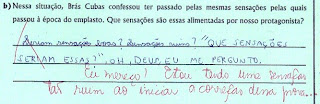 b) Nessa situação, Brás Cubas confessou ter passado pelas mesmas sensações pelas quais
passou à época do emplasto. Que sensações são essas alimentadas por nosso protagonista?
Seriam sensações boas? Sensações ruins? "QUE SENSAÇÕES
SERIAM ESSAS?", OH, DEUS, EU ME PERGUNTO.
Eu mereço! Estou tendo uma sensação
tão ruim ao iniciar a correção dessa prova...